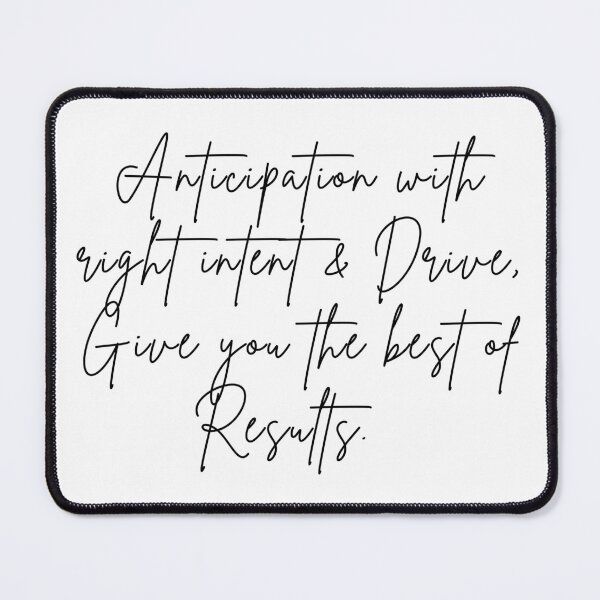 Anticipation with
right intent & Drive,
Give you the best of
Results.